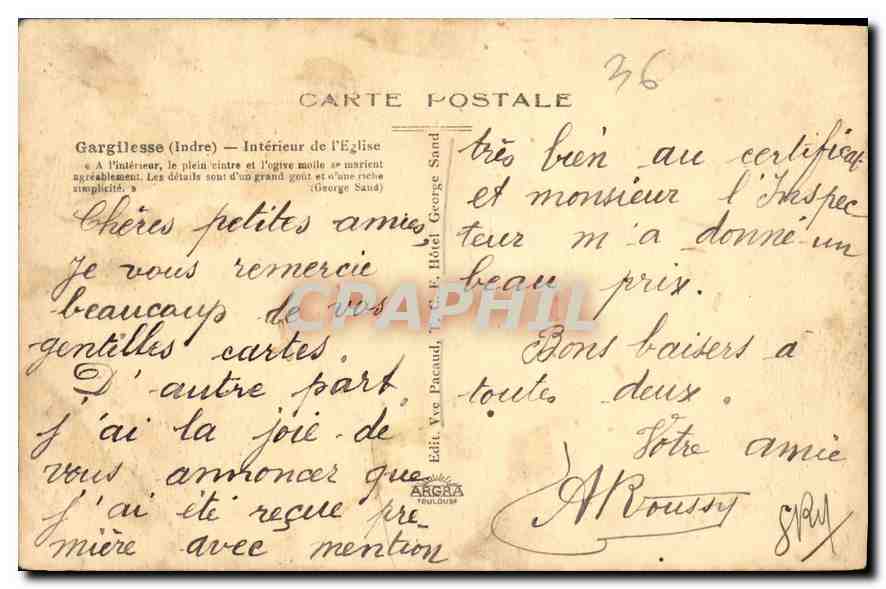 36
CARTE POSTALE
Gargilesse (Indre) — Intérieur de l'Eglise
« A l'intérieur, le plein cintre et l'ogive molle se marient
agréablement. Les détails sont d'un grand goût et d'une riche
simplicité. » (George Sand)
Chères petites amies,
Je vous remercie
beaucoup de vos
gentilles cartes.
D'autre part
j'ai la joie de
vous annoncer que
j'ai été reçue pre-
mière avec mention
Edit. Vve Pacaud, T. C. F. Hôtel George Sand
ARGRA
TOULOUSE
très bien au certificat
et monsieur l'Inspec
teur m'a donné un
beau prix.
Bons baisers à
toutes deux.
Votre amie
A Roussy
CPAPHIL